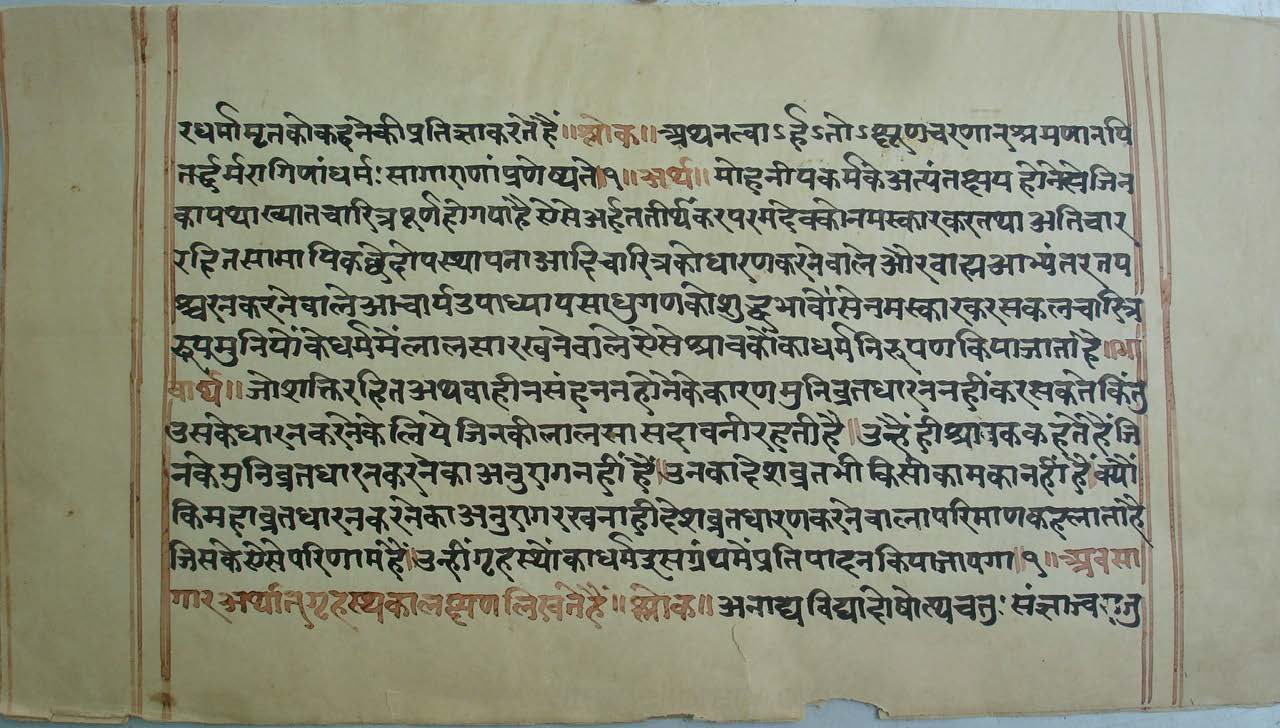 रधर्मामृतकोकहनेकीप्रतिज्ञाकरतेहैं॥श्लोक॥अथनत्वाऽर्हऽतोऽक्षूणचरणानश्रमणानपि
तर्द्धर्मरागिणांधर्मः सागाराणांप्रणेष्यते१॥अर्थ॥मोहनीयकर्मकेअत्यंतक्षय होनेसेजिन
कायथाख्यातचारित्रपूर्णहोगयाहैऐसेअर्हततीर्थंकरपरमदेवकोनमस्कारकरतथा अतिचार
रहितसामायिकछेदोपस्थापनाआदिचारित्रकोधारणकरनेवालेऔरवाह्यआभ्यंतरतप
श्चरनकरनेवालेआचार्यउपाध्यायसाधुगणकोशुद्धभावोंसेनमस्कारकरसकलचारित्र
रूपमुनियोंकेधर्ममेंलालसारखनेवालेऐसेश्रावकोंकाधर्मनिरूपणकियाजाताहै॥भा
वार्थ॥जोशक्तिरहितअथवाहीनसंहननहोनेकेकारणमुनिव्रतधारननहींकरसकतेकिंतु
उसकेधारनकरनेकेलियेजिनकीलालसासदावनीरहतीहै॥उन्हैंहीश्रावककहतेहैंजि
नकेमुनिव्रतधारनकरनेकाअनुरागनहींहैं॥उनकादेशव्रतभीकिसीकामकानहींहे॥क्यों
किमहाव्रतधारनकरनेकाअनुरागरखनाहीदेशव्रतधारणकरनेवालापरिमाणकहलाताहै
जिसकेऐसेपरिणामहैं॥उन्हींगृहस्थोंकाधर्मइसग्रंथमेंप्रतिपादनकियाजायगा॥१॥अवसा
गारअर्थात्गृहस्थकालक्षणलिखतेहैं॥श्लोक॥अनाद्यविद्यादोषोत्थचतुः संज्ञाज्वरातु